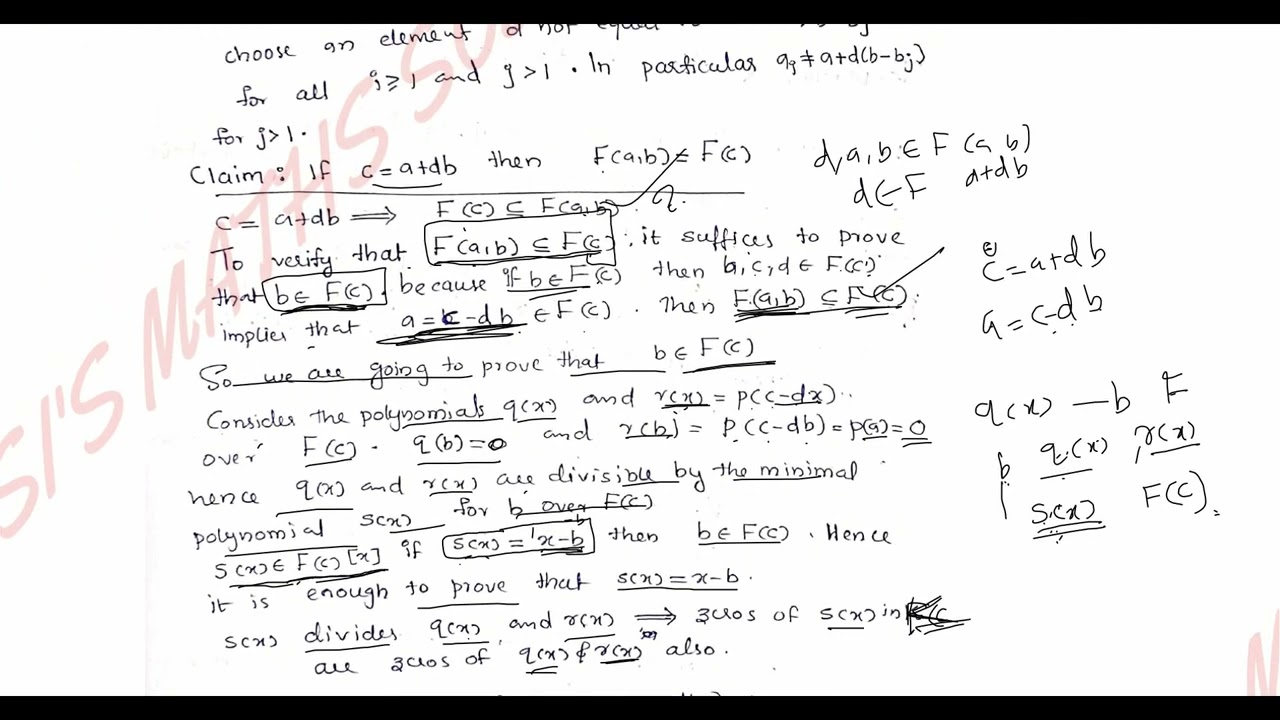 choose an element d not equal
for all i ≥ 1 and j > 1 . In particular aⱼ ≠ a+d(b-bⱼ)
for j > 1 .
Claim : If c = a+db then F(a,b) = F(c)
c = a+db ⟹ F(c) ⊆ F(a,b)
To verify that F(a,b) ⊆ F(c) , it suffices to prove
that b ∈ F(c) . because if b ∈ F(c) then b,c,d ∈ F(c)
implies that a = c - db ∈ F(c) . Then F(a,b) ⊆ F(c) .
So we are going to prove that b ∈ F(c)
Consider the polynomials q(x) and r(x) = p(c-dx) .
over F(c) . q(b) = 0 and r(b) = p(c-db) = p(a) = 0
hence q(x) and r(x) are divisible by the minimal
polynomial s(x) for b over F(c)
s(x) ∈ F(c)[x] if s(x) = x-b then b ∈ F(c) . Hence
it is enough to prove that s(x) = x-b .
s(x) divides q(x) and r(x) ⟹ zeros of s(x) in
are zeros of q(x) & r(x) also .
d, a, b ∈ F (a, b)
d ∈ F a+db
c = a+db
a = c-db
q(x) — b F
b q(x) , r(x)
s(x) F(c) .
SI'S MATHS